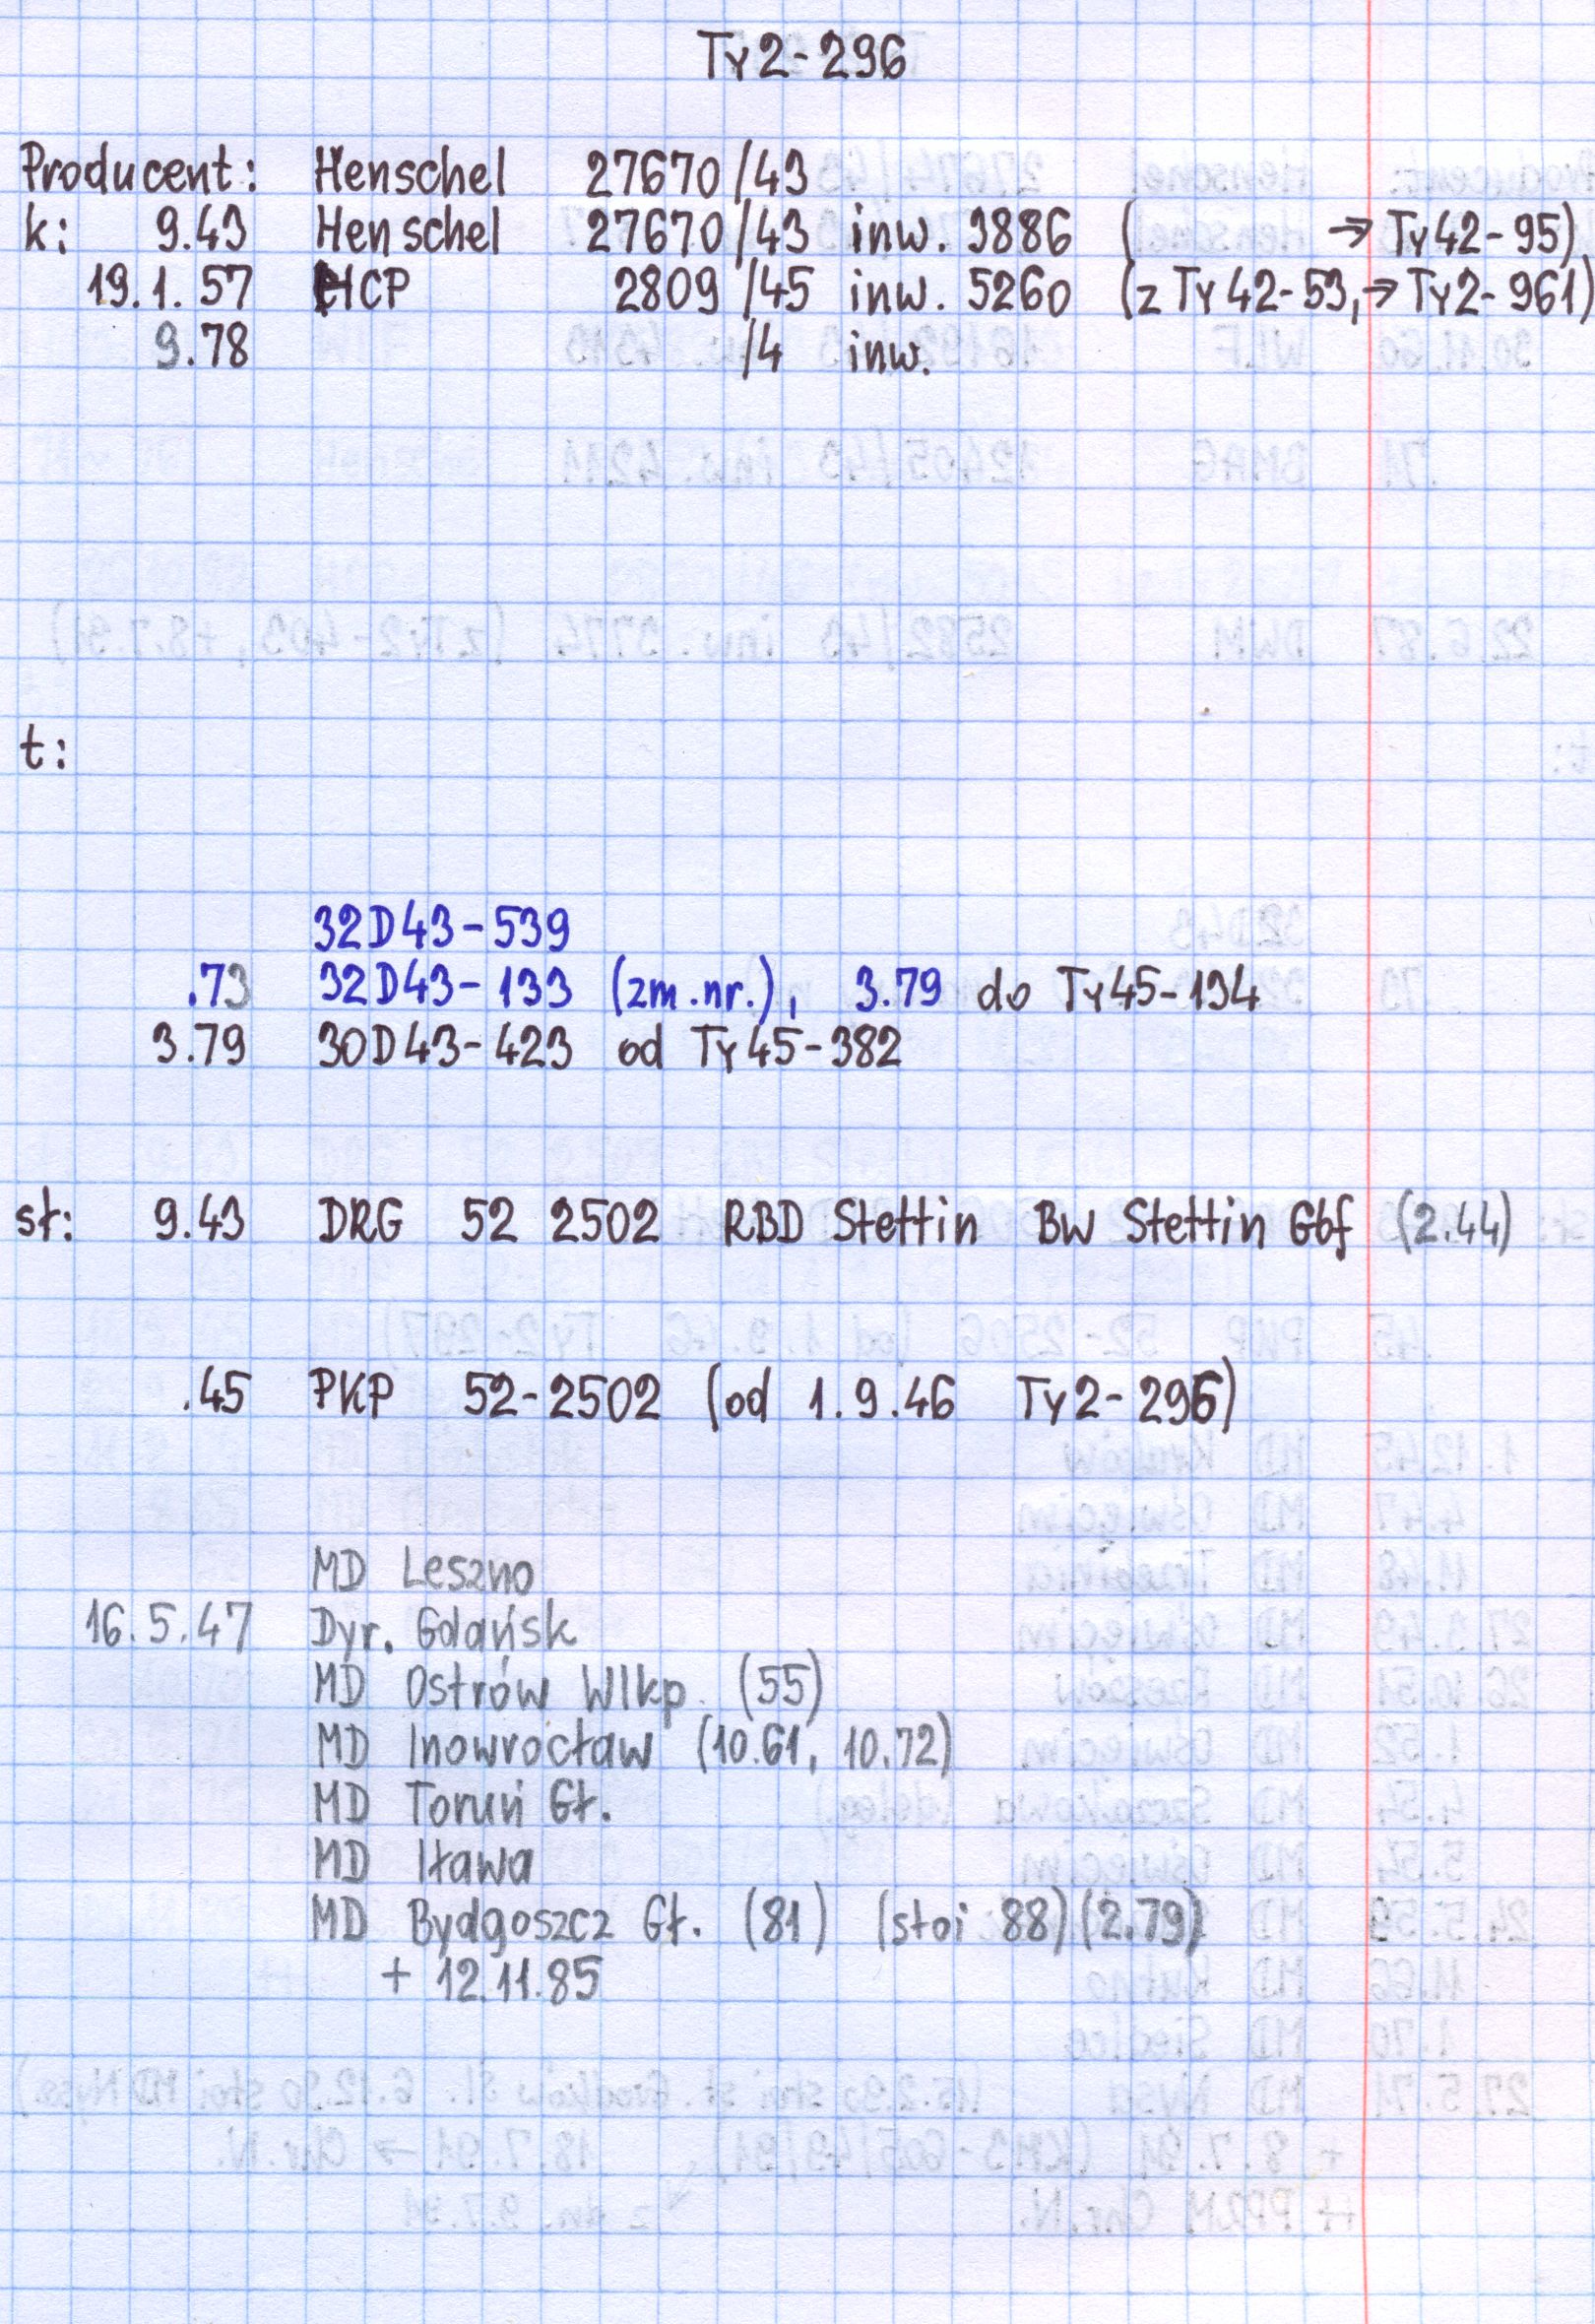 Ty2-296
Producent: Henschel 27670/43
k: 9.43 Henschel 27670/43 inw. 3886 ( → Ty42-95)
19.1.57 HCP 2809/45 inw. 5260 (z Ty42-53, → Ty2-961)
9.78 /4 inw.
t:
32D43-539
.73 32D43-133 (zm.nr.), 3.79 do Ty45-194
3.79 30D43-423 od Ty45-382
sł: 9.43 DRG 52 2502 RBD Stettin Bw Stettin Gbf (2.44)
.45 PKP 52-2502 (od 1.9.46 Ty2-296)
MD Leszno
16.5.47 Dyr. Gdańsk
MD Ostrów Wlkp. (55)
MD Inowrocław (10.61, 10.72)
MD Toruń Gł.
MD Iława
MD Bydgoszcz Gł. (81) (stoi 88) (2.79)
+ 12.11.85